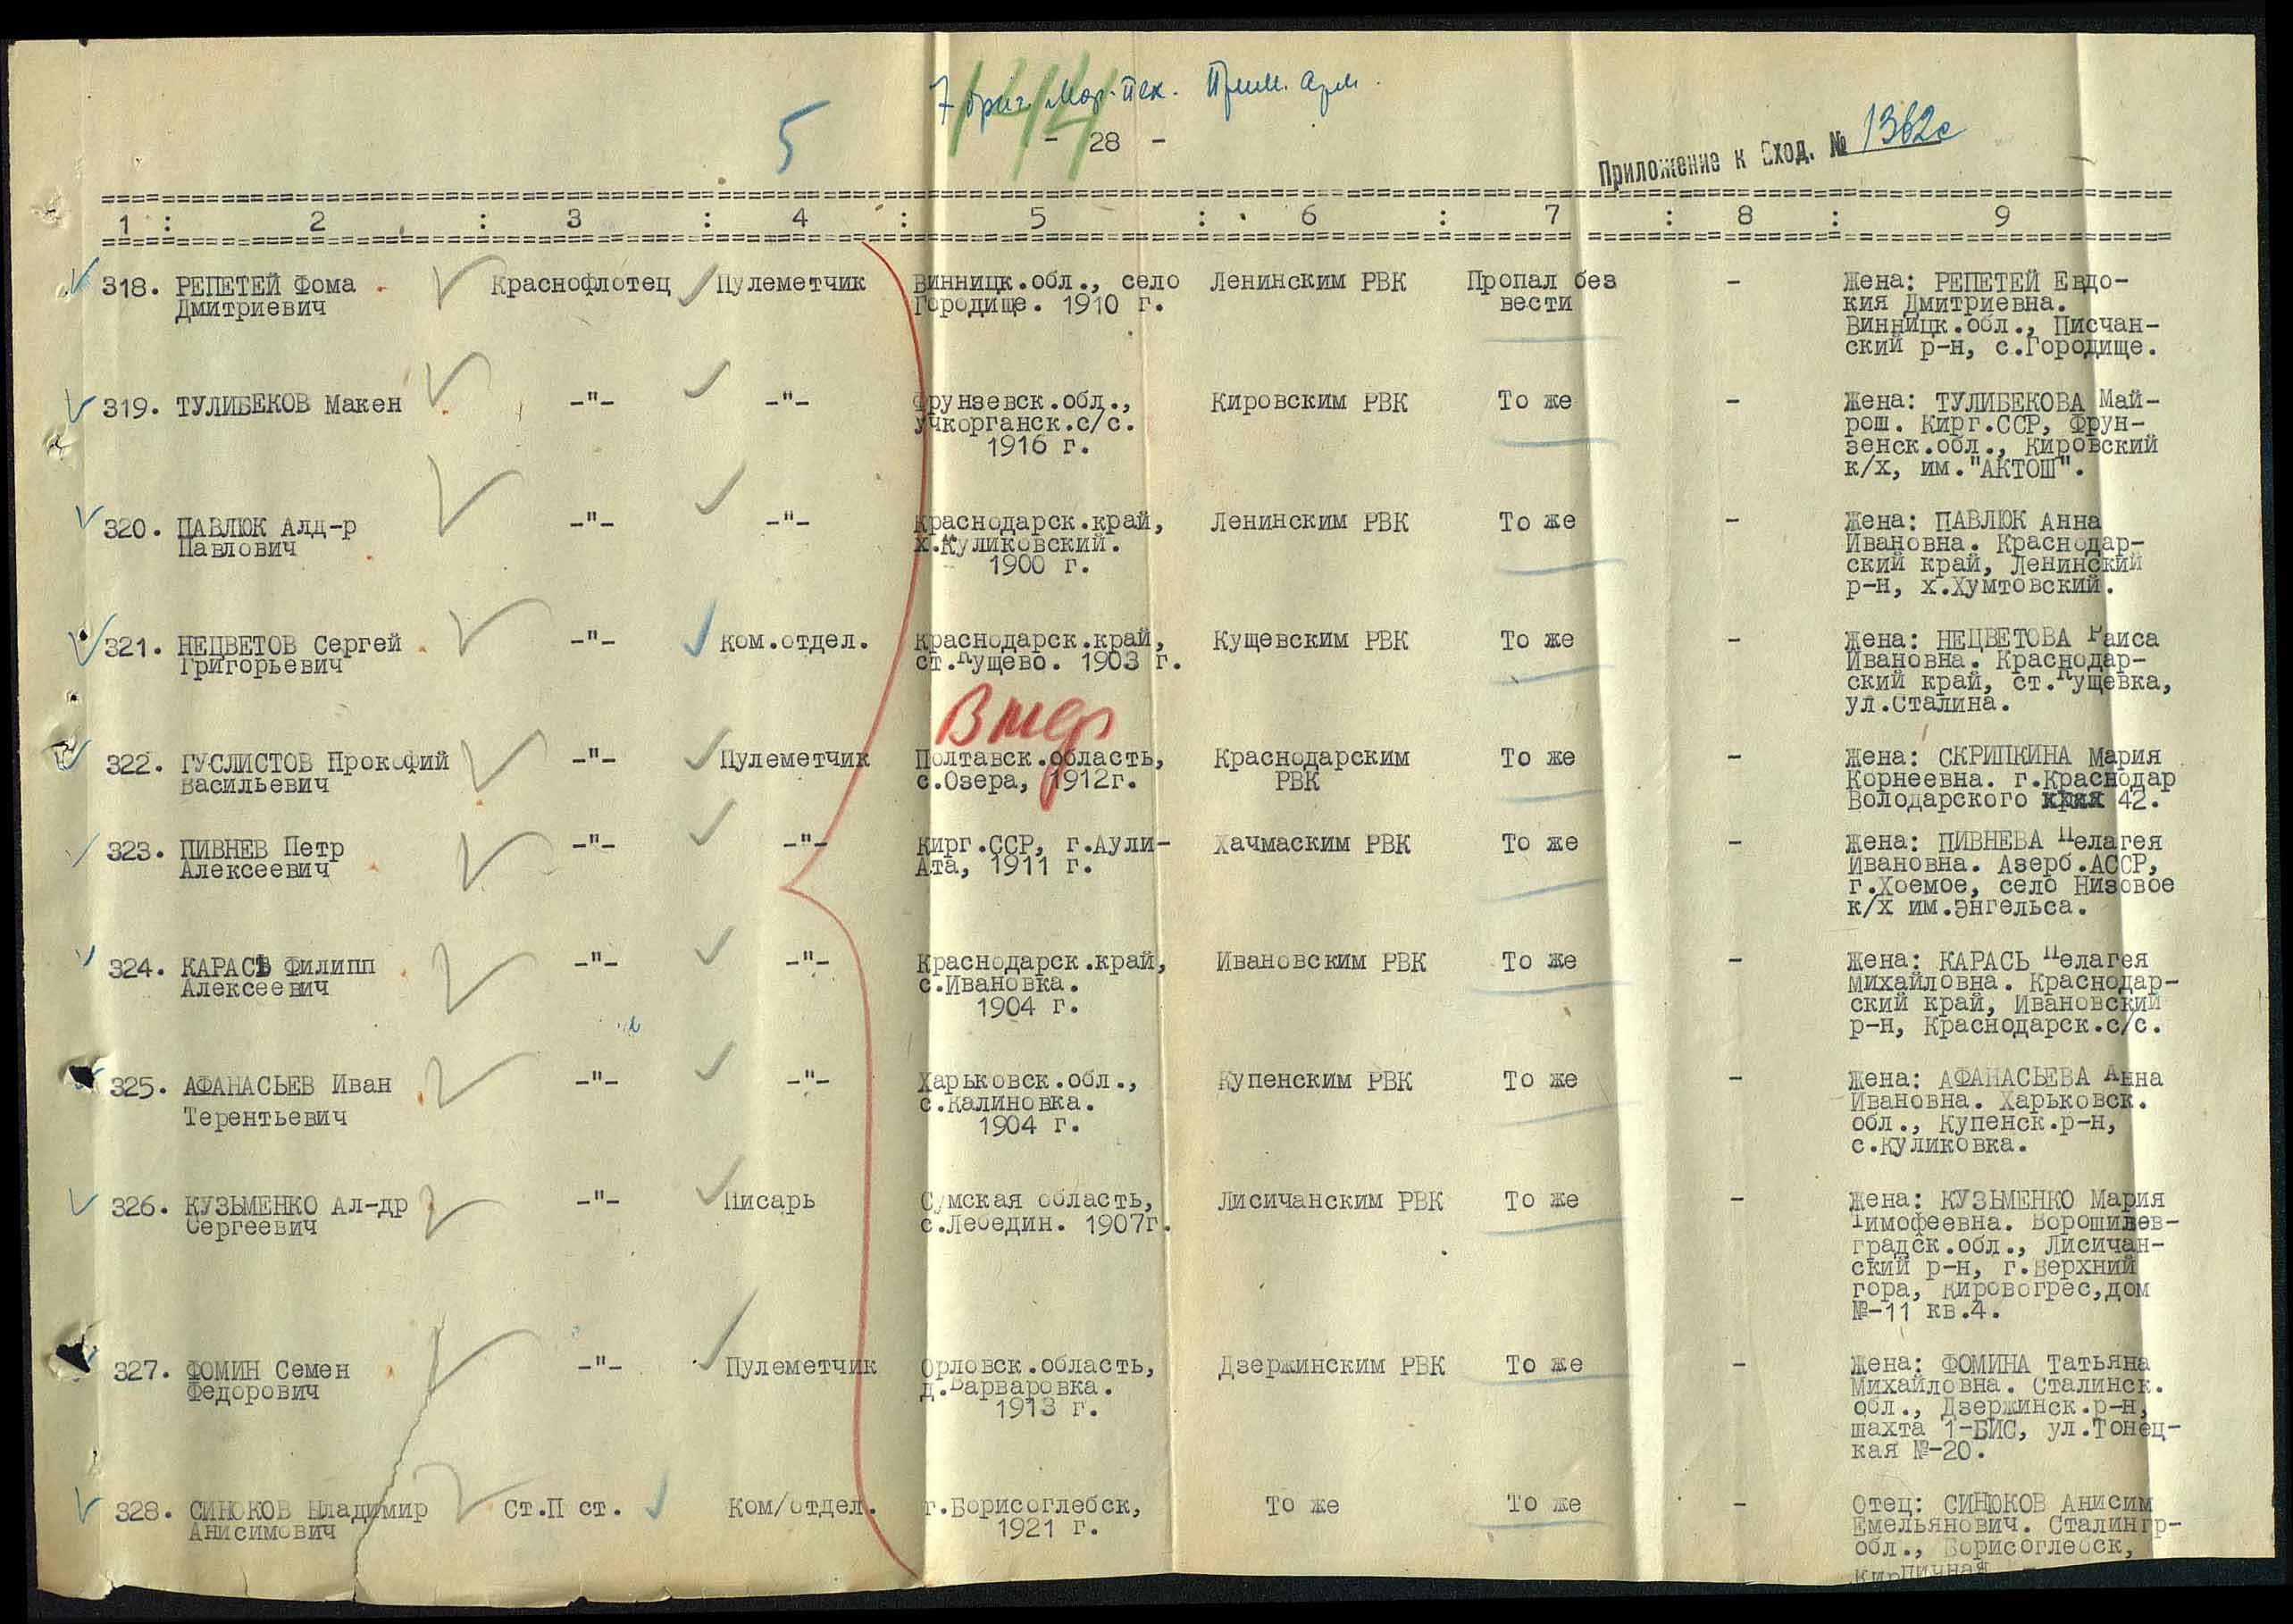 7 бриг. Мор. пех. Прим. арм.
5
- 28 -
Приложение к Вход. № 1362с
1 : 2 : 3 : 4 : 5 : 6 : 7 : 8 : 9
318. РЕПЕТЕЙ Фома Краснофлотец Пулеметчик Винницк.обл., село Ленинским РВК Пропал без - Жена: РЕПЕТЕЙ Евдо-
Дмитриевич Городище. 1910 г. вести кия Дмитриевна.
Винницк.обл., Писчан-
ский р-н, с.Городище.
319. ТУЛИБЕКОВ Макен -"- -"- Фрунзевск.обл., Кировским РВК То же - Жена: ТУЛИБЕКОВА Май-
учкорганск.с/с. рош. Кирг.ССР, Фрун-
1916 г. зенск.обл., Кировский
к/х, им."АКТОШ".
320. ПАВЛЮК Алд-р -"- -"- Краснодарск.край, Ленинским РВК То же - Жена: ПАВЛЮК Анна
Павлович х.Куликовский. Ивановна. Краснодар-
1900 г. ский край, Ленинский
р-н, х.Хумтовский.
321. НЕЦВЕТОВ Сергей -"- Ком.отдел. Краснодарск.край, Кущевским РВК То же - Жена: НЕЦВЕТОВА Раиса
Григорьевич ст.Кущево. 1903 г. Ивановна. Краснодар-
ский край, ст.Кущевка,
ул.Сталина.
322. ГУСЛИСТОВ Прокофий -"- Пулеметчик Полтавск.область, Краснодарским То же - Жена: СКРИПКИНА Мария
Васильевич с.Озера, 1912г. РВК Корнеевна. г.Краснодар
Володарского 42.
323. ПИВНЕВ Петр -"- -"- Кирг.ССР, г.Аули- Хачмаским РВК То же - Жена: ПИВНЕВА Пелагея
Алексеевич Ата, 1911 г. Ивановна. Азерб.АССР,
г.Хоемое, село Низовое
к/х им.Энгельса.
324. КАРАСЬ Филипп -"- -"- Краснодарск.край, Ивановским РВК То же - Жена: КАРАСЬ Пелагея
Алексеевич с.Ивановка. Михайловна. Краснодар-
1904 г. ский край, Ивановский
р-н, Краснодарск.с/с.
325. АФАНАСЬЕВ Иван -"- -"- Харьковск.обл., Купенским РВК То же - Жена: АФАНАСЬЕВА Анна
Терентьевич с.Калиновка. Ивановна. Харьковск.
1904 г. обл., Купенск.р-н,
с.Куликовка.
326. КУЗЬМЕНКО Ал-др -"- Писарь Сумская область, Лисичанским РВК То же - Жена: КУЗЬМЕНКО Мария
Сергеевич с.Лебедин. 1907г. Тимофеевна. Ворошилов-
градск.обл., Лисичан-
ский р-н, г.Верхний
гора, Кировогрес,дом
№-11 кв.4.
327. ФОМИН Семен -"- Пулеметчик Орловск.область, Дзержинским РВК То же - Жена: ФОМИНА Татьяна
Федорович д.Варваровка. Михайловна. Сталинск.
1913 г. обл., Дзержинск.р-н,
шахта 1-БИС, ул.Тонец-
кая №-20.
328. СИНЮКОВ Владимир Ст.П ст. Ком/отдел. г.Борисоглебск, То же То же - Отец: СИНЮКОВ Анисим
Анисимович 1921 г. Емельянович. Сталингр-
обл., Борисоглебск,
Кирпичная